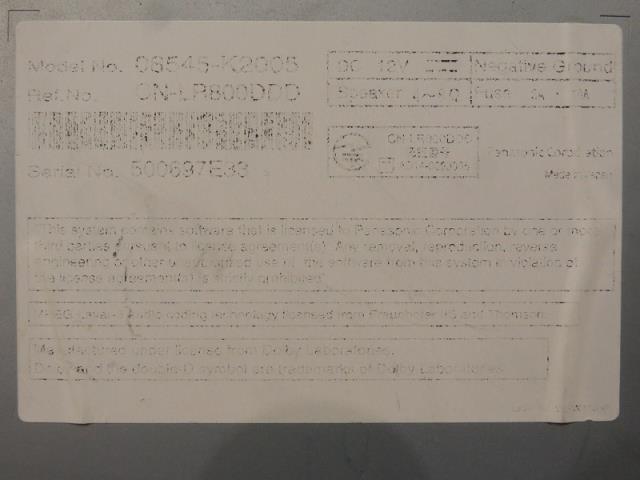 Model No. 08545-K2005
Ref.No. CN-LR800DDD
Serial No. 500697E33
DC 12V Negative Ground
Speaker 4~8Ω Fuse
CN-LR800DDD
Panasonic Corporation
Made in Japan
This system contains software that is licensed to Panasonic Corporation by one or more
third parties pursuant to license agreement(s). Any removal, reproduction, reverse
engineering or other unauthorized use of the software from this system in violation of
the license agreement(s) is strictly prohibited.
MPEG Layer-3 Audio coding technology licensed from Fraunhofer IIS and Thomson.
Manufactured under license from Dolby Laboratories.
Dolby and the double-D symbol are trademarks of Dolby Laboratories.